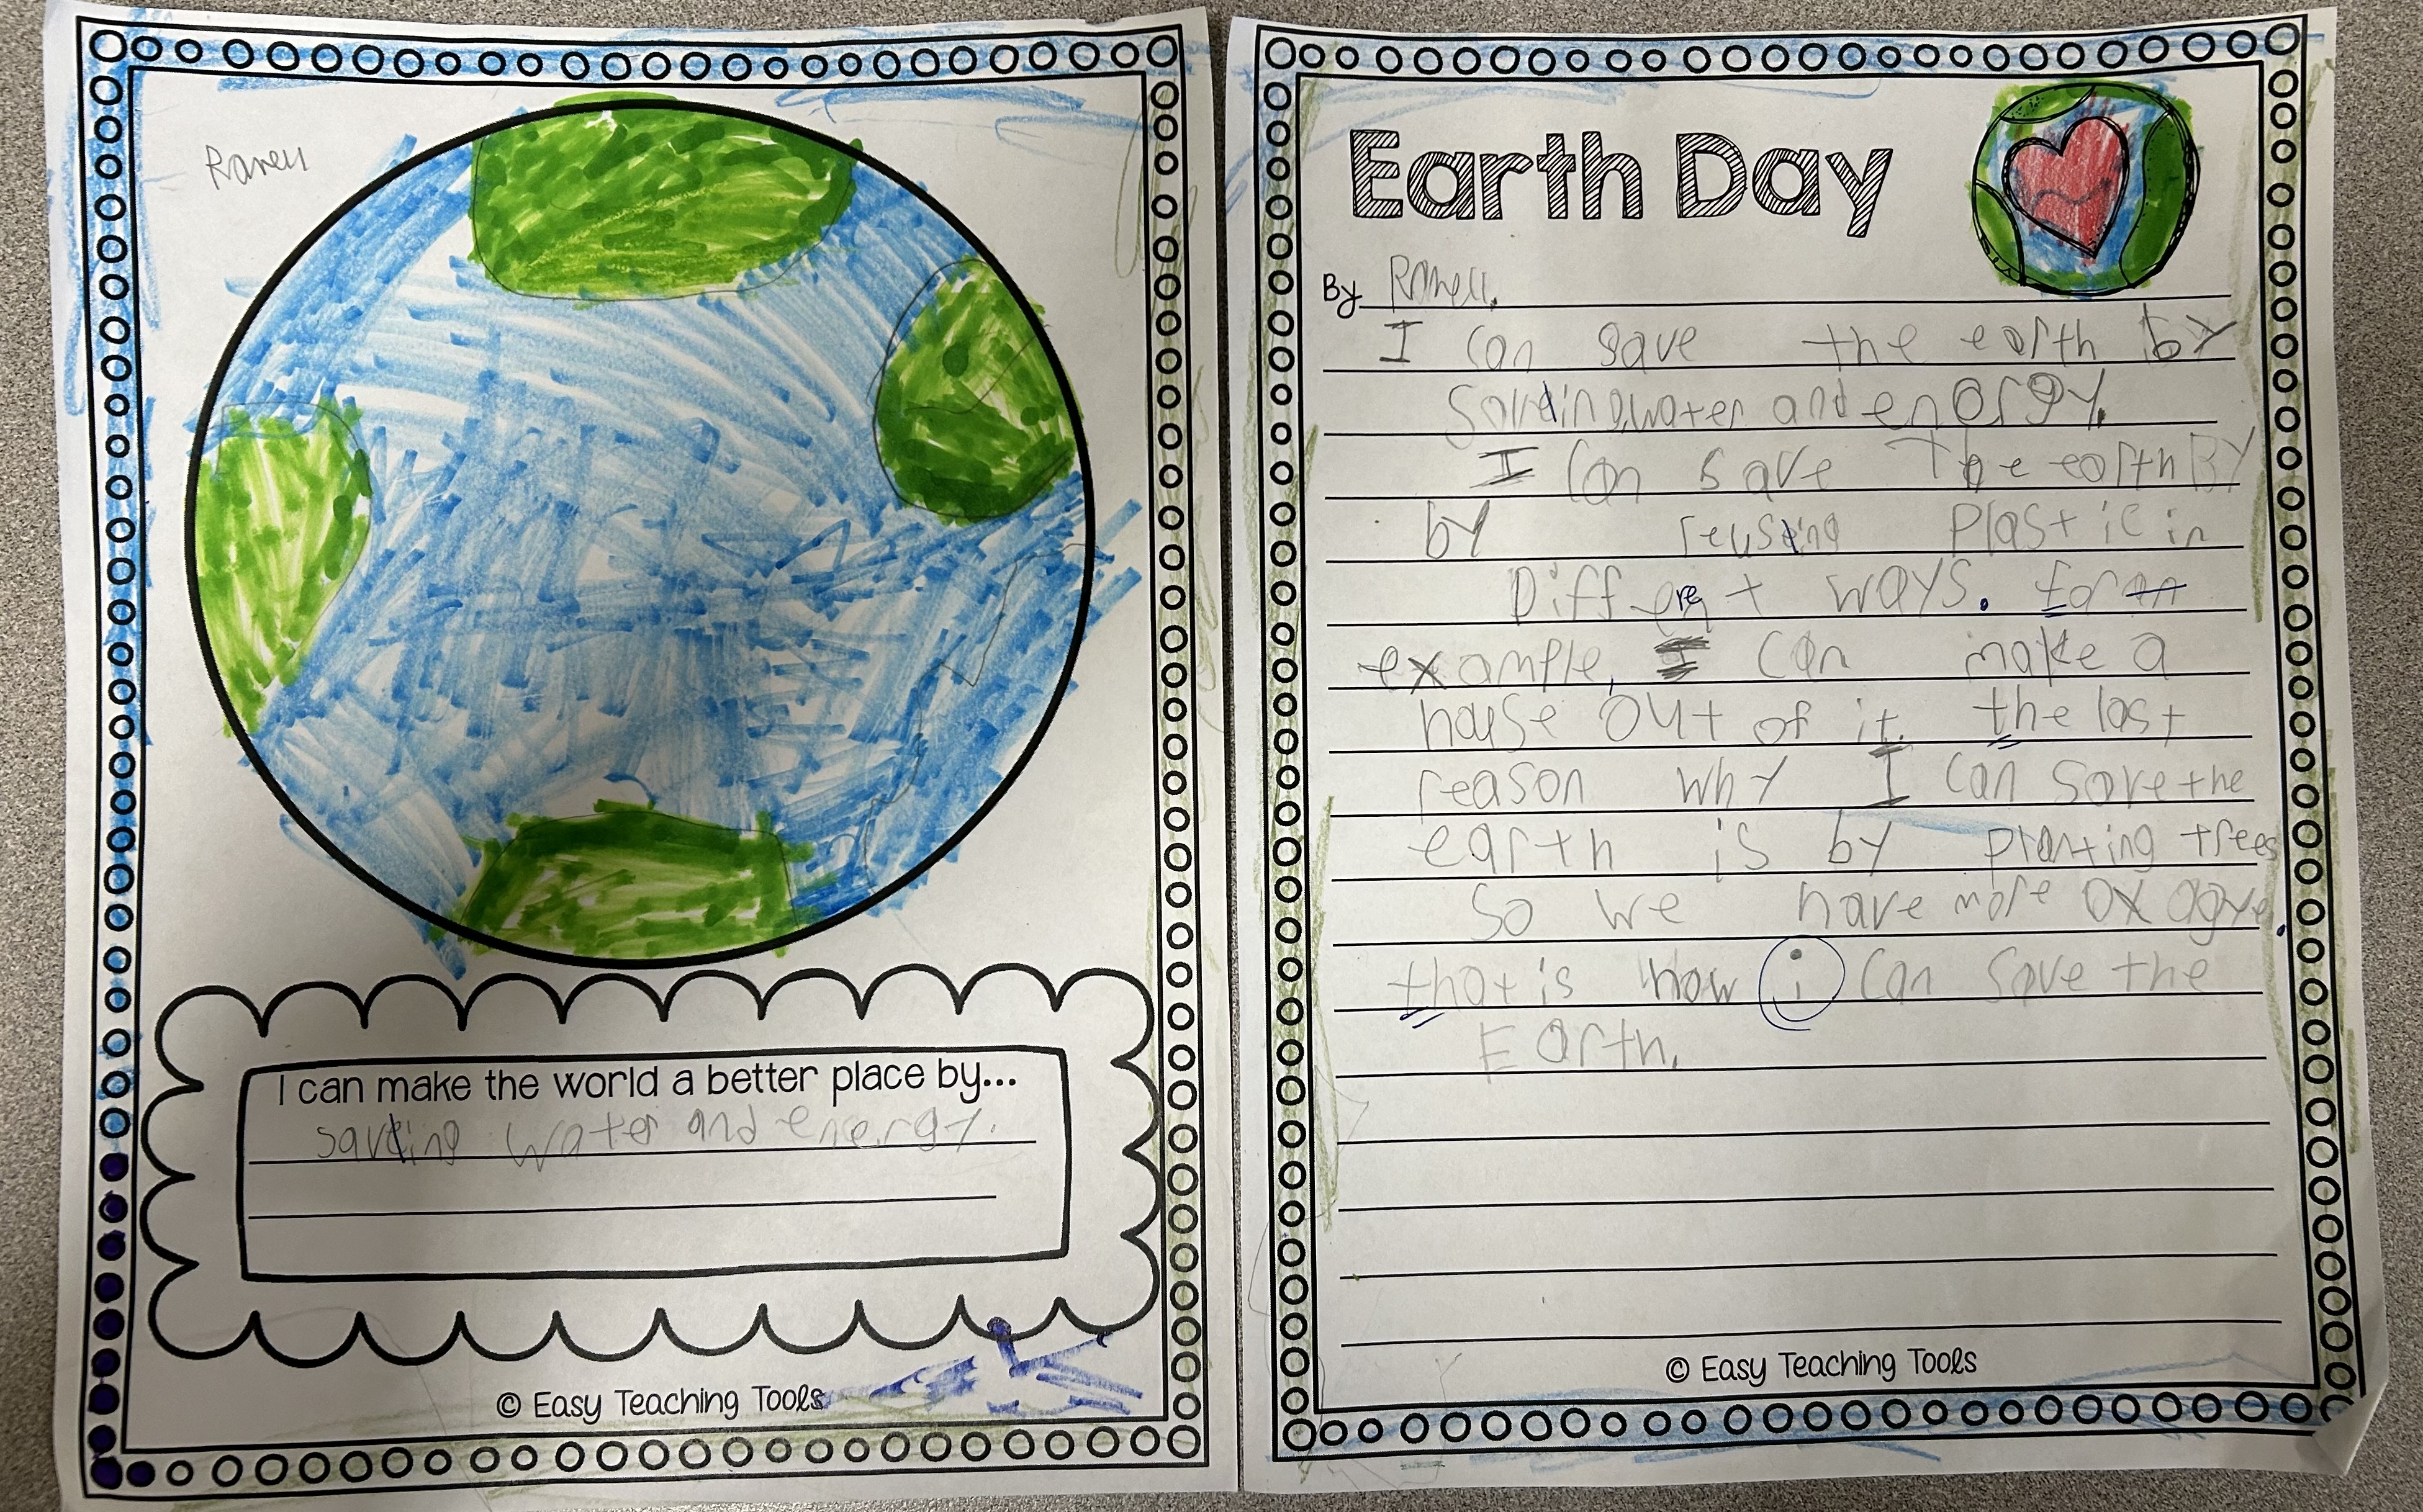 I can make the world a better place by...
saving water and energy.
© Easy Teaching Tools
Earth Day
By
I can save the earth by
water and energy.
I can save The earth BY
by reusing Plastic in
Different ways. for an
example, I can make a
house out of it. the last
reason why I can save the
earth is by planting trees
so we have more oxagye.
that is how i can save the
Earth.
© Easy Teaching Tools